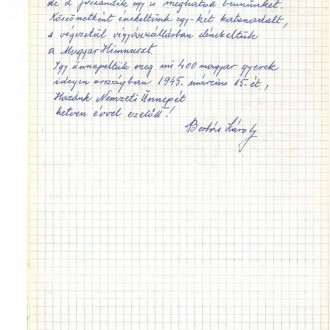 de a jószándék így is meghatott bennünket.
Köszönetként énekeltünk egy-két katonadalt,
s végezetül vigyázzállásban elénekeltük
a Magyar Himnuszt.
Így ünnepeltük meg mi 400 magyar gyerek
idegen országban 1945. március 15-ét,
Hazánk Nemzeti Ünnepét
hetven évvel ezelőtt!
Károly